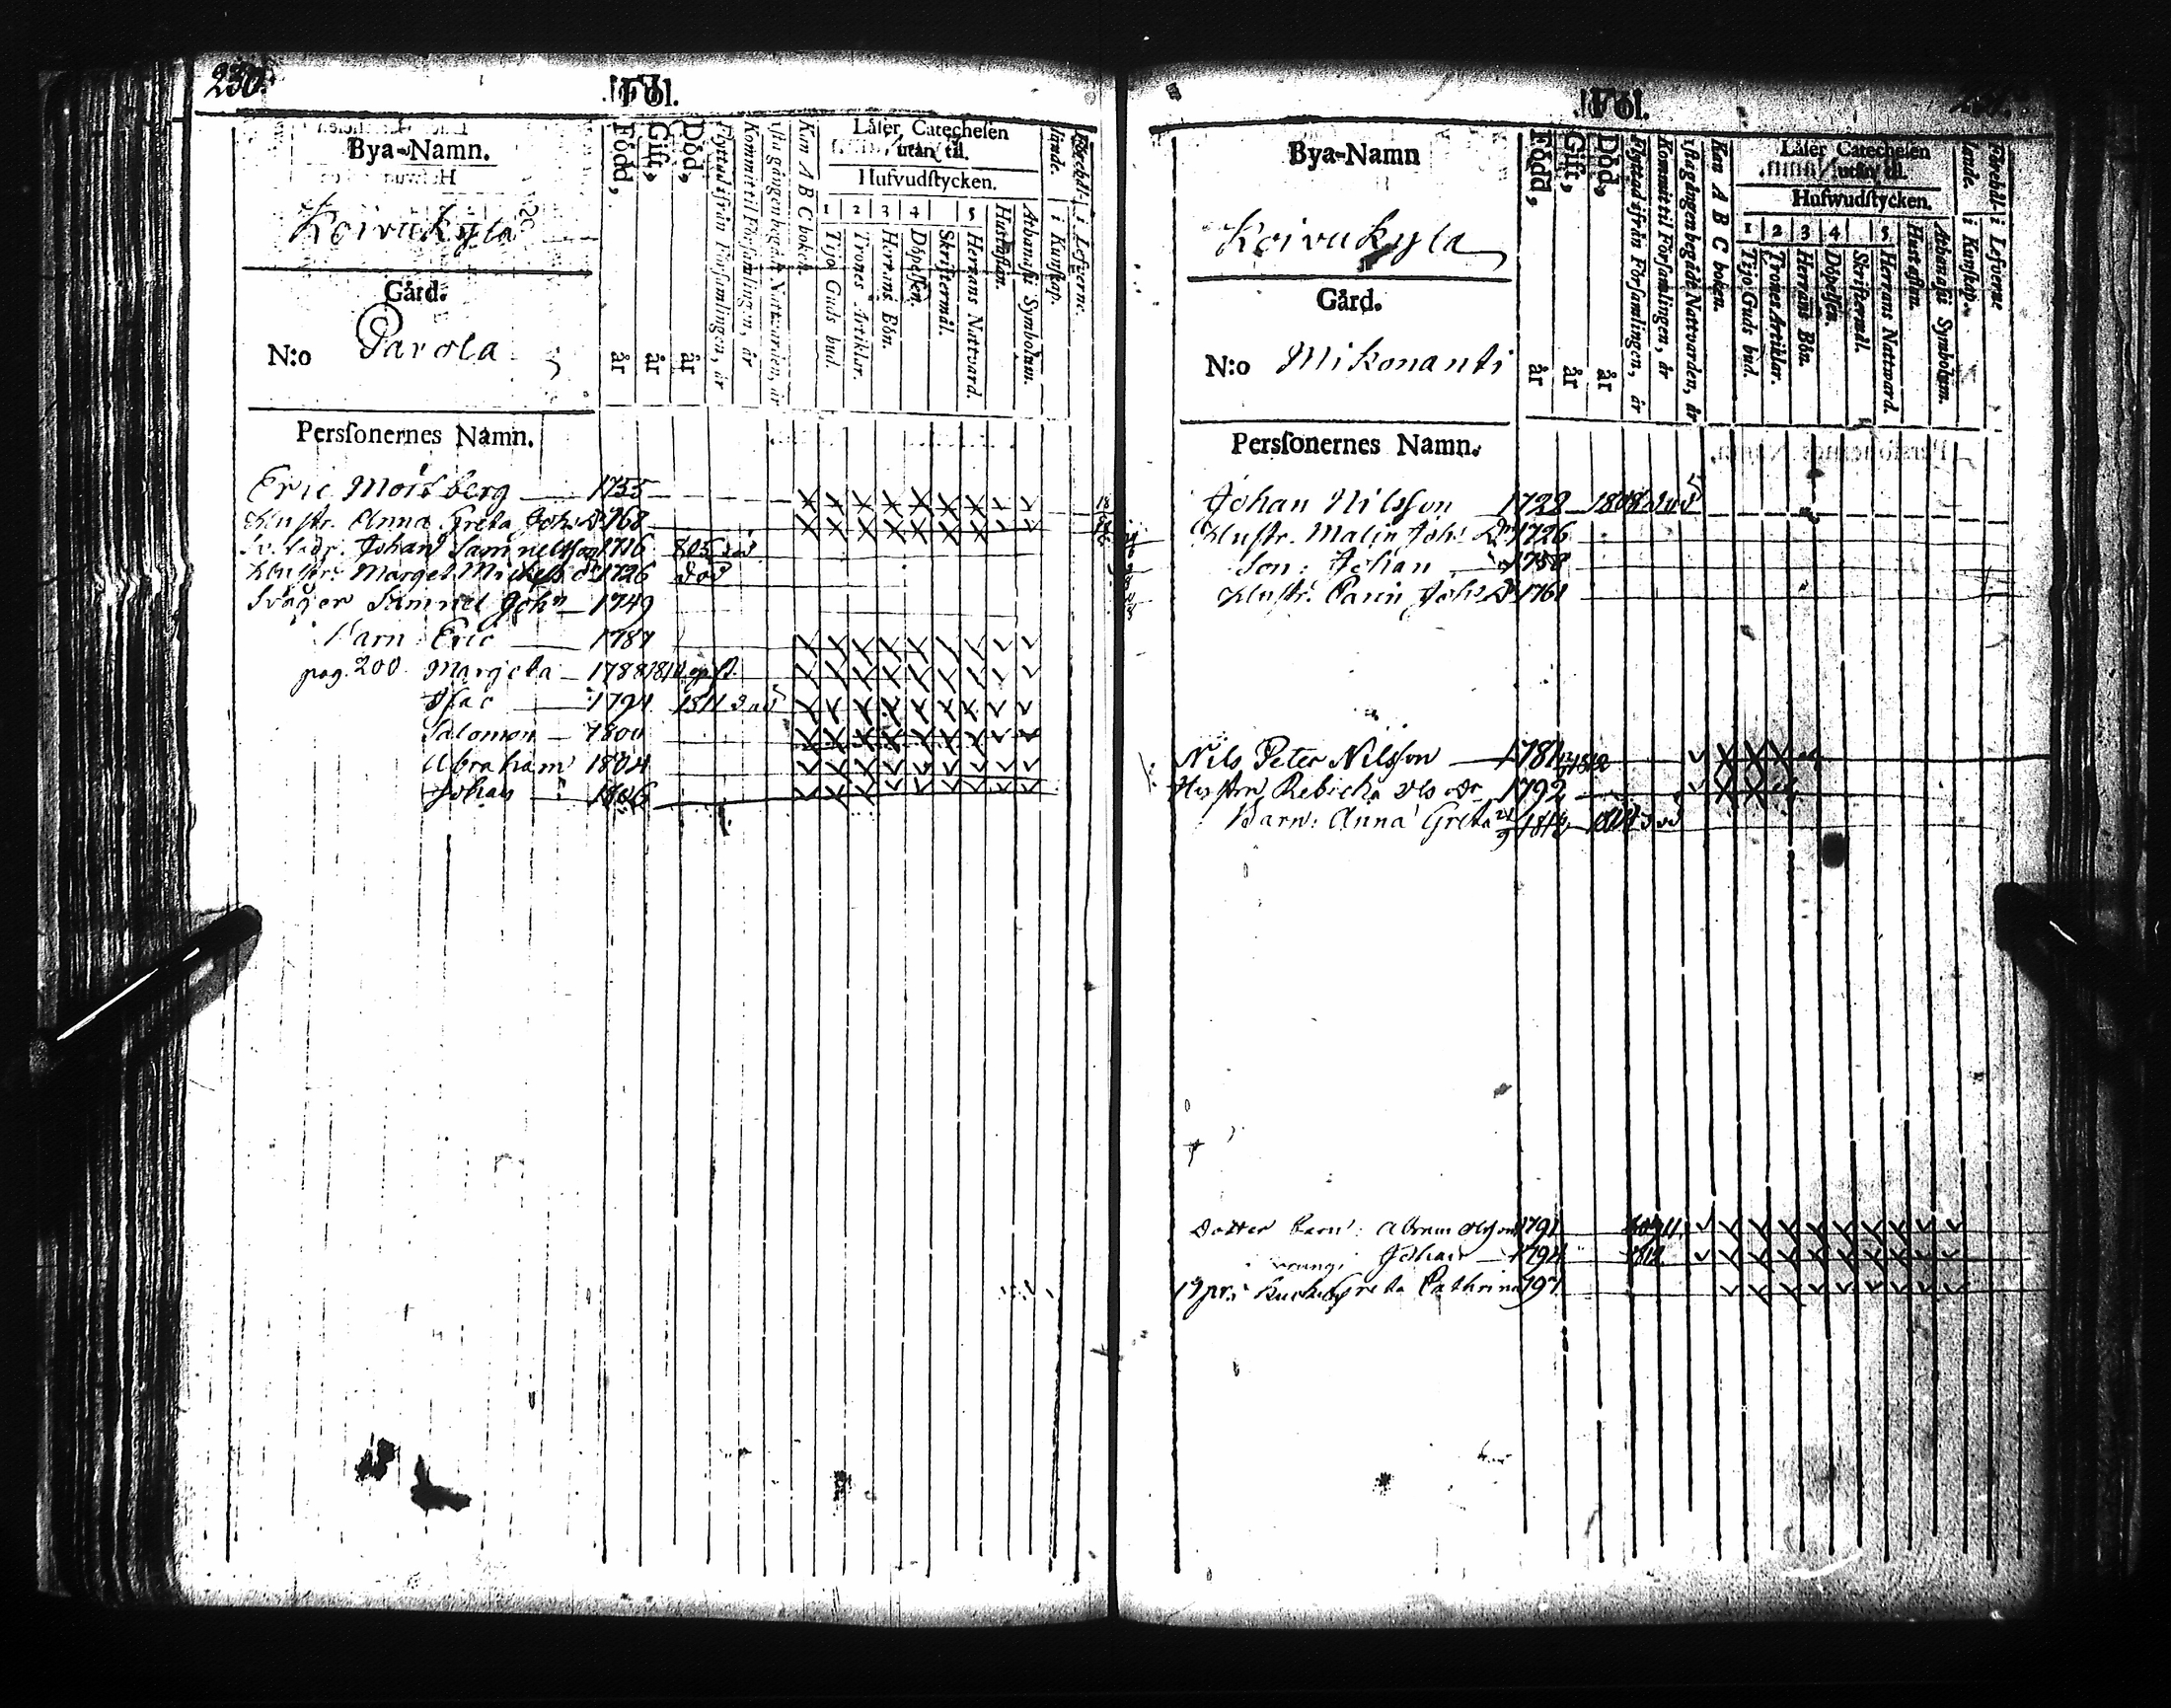 230.
Fol.
Bya-Namn.
Koivukyla
Gård.
N:o Parola
Född, år
Gift, år
Död, år
Flyttad ifrån Församlingen, år
Kommit til Församlingen, år
1sta gången begådt Nattvarden, år
Kan A B C boken.
Låser Catechesen
utan til.
Hufvudstycken.
1 2 3 4 5
Tijo Guds bud.
Trones Artiklar.
Herrans Bön.
Döpelsen.
Skriftermål.
Herrans Nattvard.
Hustaflan.
Athanasii Symbolum.
i Kunskap.
i Lefverne.
Personernes Namn.
Eric Morsberg 1755
Hustr. Anna Greta Joh: D 1768
Johan Samuelsson 1716 805 död
Hustr. Marget Mickels dr 1726 död
Svåger Samuel Joh 1749
Barn Eric 1787
pag. 200 Margeta 1788 1810 gift.
Isac 1794 1811 död
Salomon 1800
Abraham 1804
Johan 1806
Fol.
Bya-Namn
Koivukyla
Gård.
N:o Mikonanti
Född, år
Gift, år
Död, år
Flyttad ifrån Församlingen, år
Kommit til Församlingen, år
1sta gången begådt Nattvarden, år
Kan A B C boken.
Låser Catechesen
utan til.
Hufwudstycken.
1 2 3 4 5
Tijo Guds bud.
Trones Artiklar.
Herrans Bön.
Döpelsen.
Skriftermål.
Herrans Nattward.
Hustaflan.
Athanasii Symbolum.
i Kunskap.
i Lefverne
Personernes Namn.
Johan Nilsson 1728 1808 död
Hustr. Malin Joh: Dr 1726
Son: Johan 1758
Hustr. Carin Joh: D 1761
Nils Peter Nilsson 1781
Hustru Rebecka 1792
Barn: Anna Greta
Dotter barn: Abram Olofson 1791
Johan 1794 1812
Greta Cathrina 1797